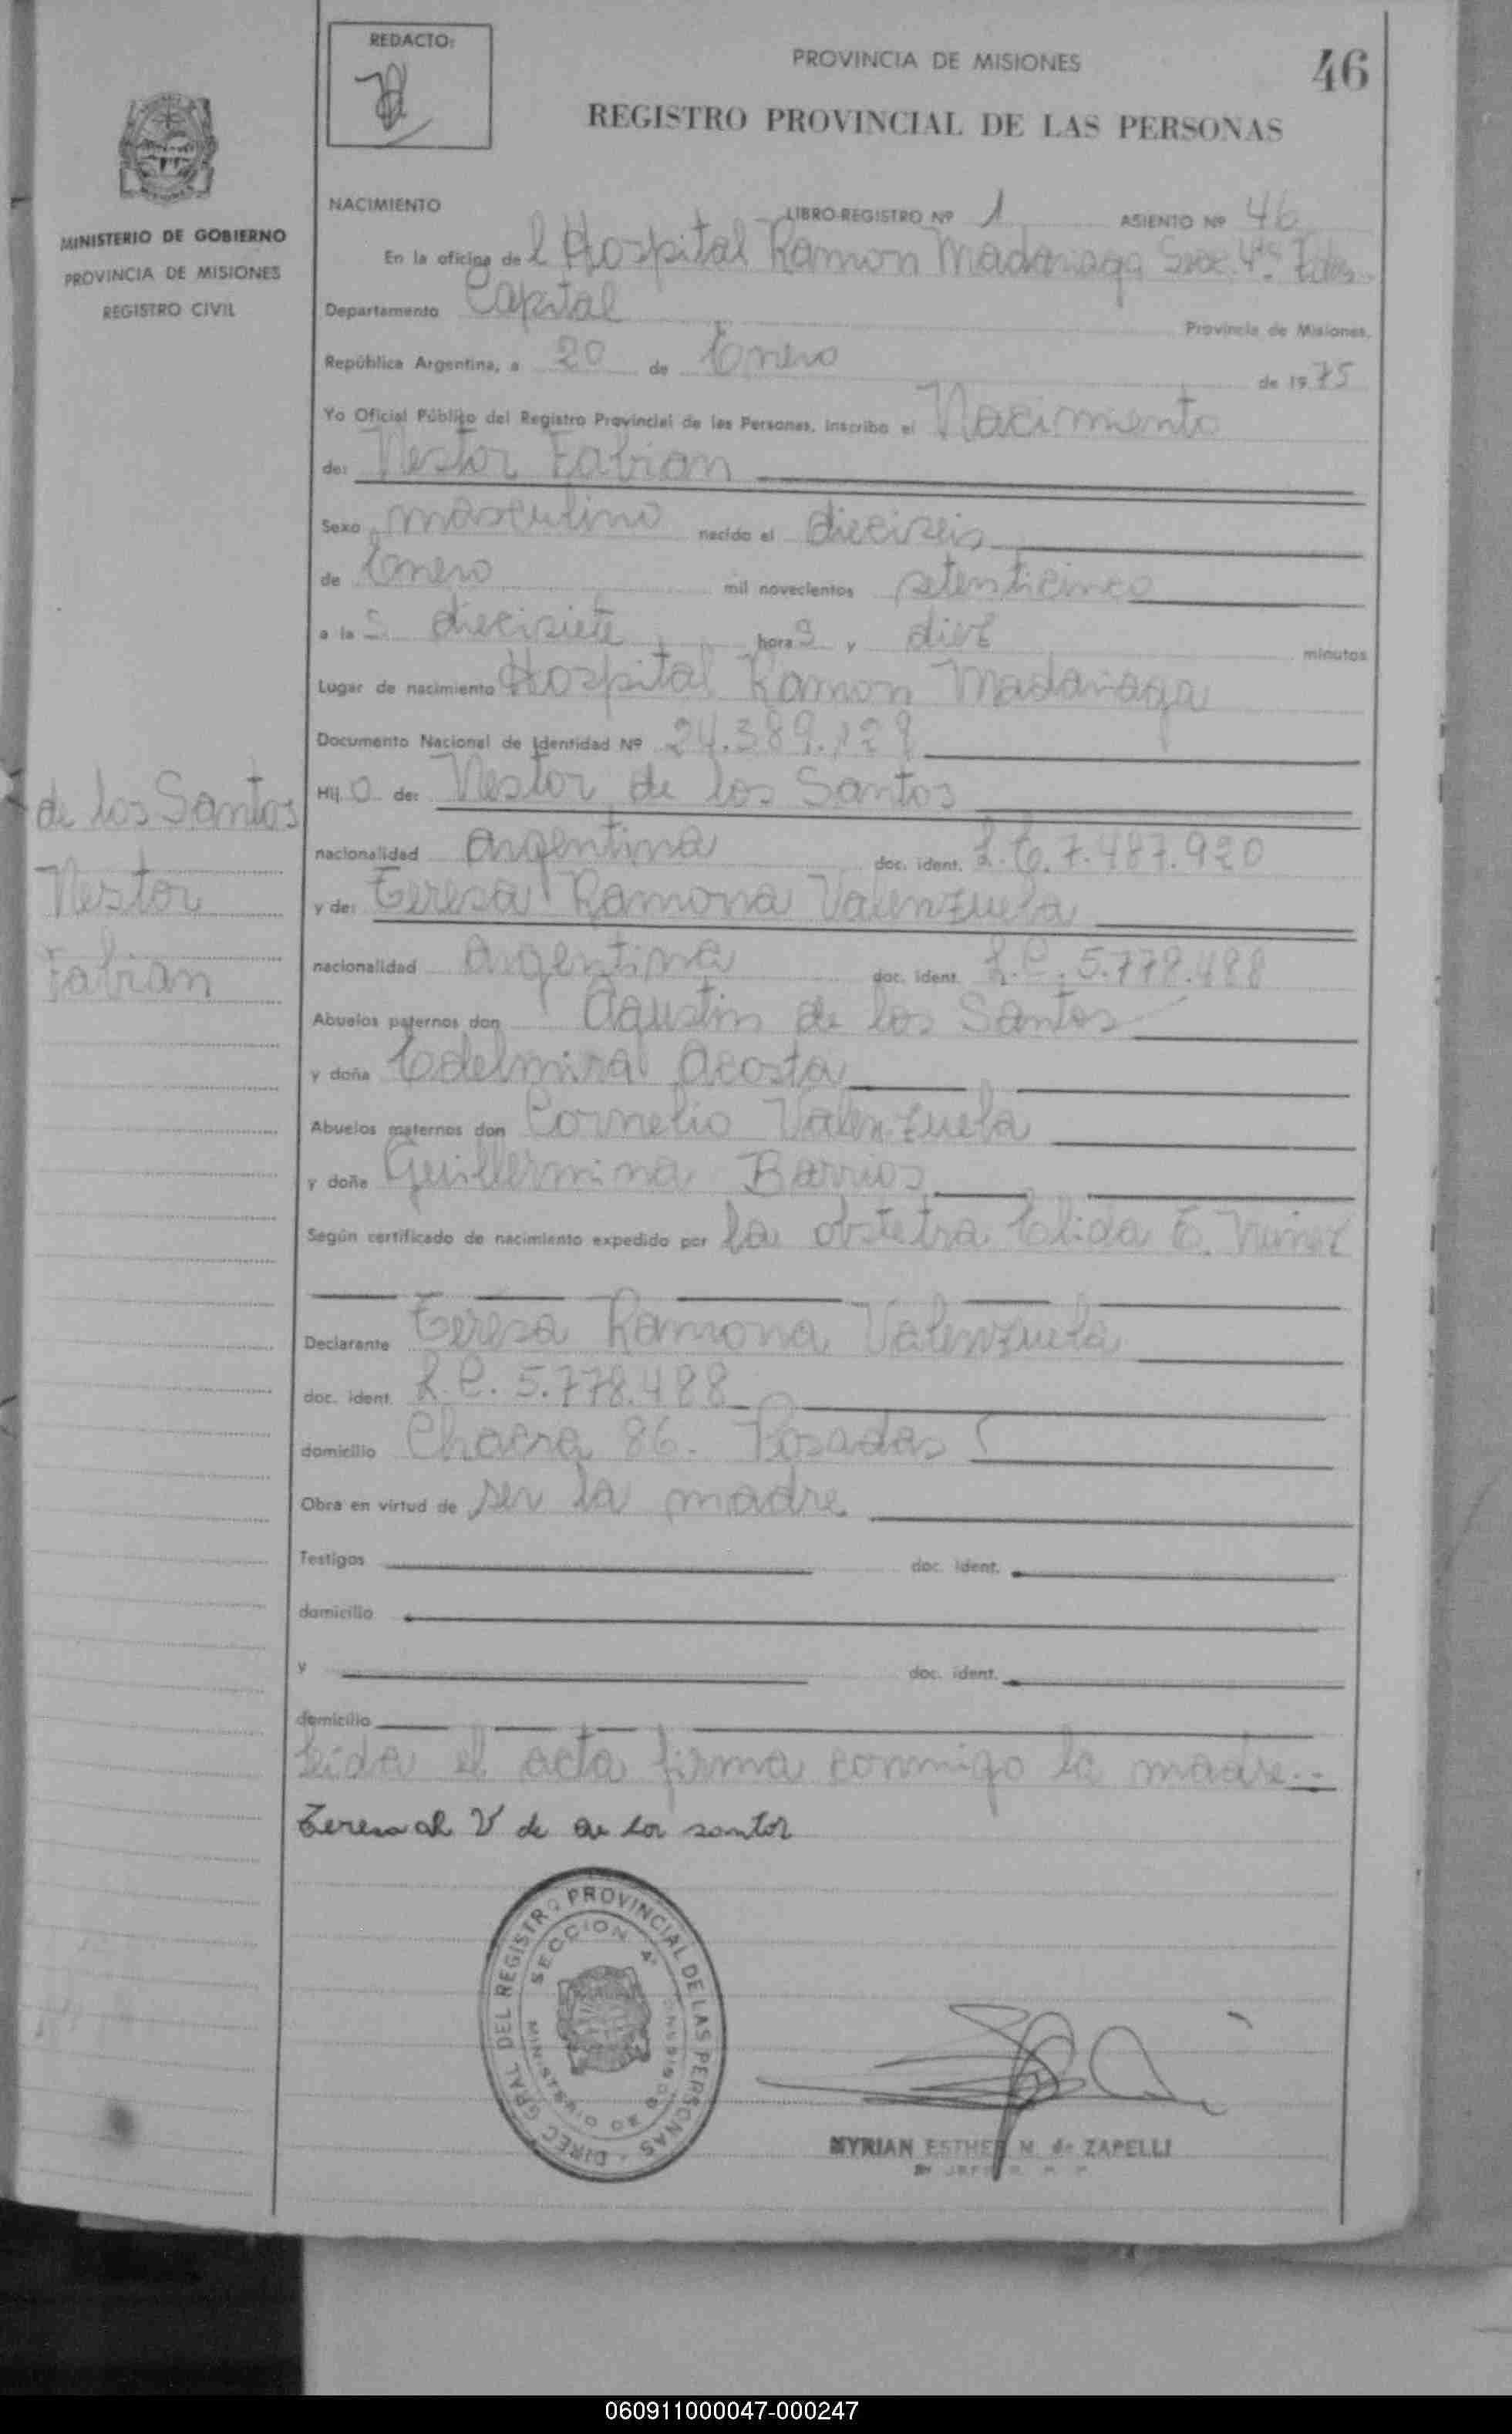 REDACTO:
PROVINCIA DE MISIONES
46
REGISTRO PROVINCIAL DE LAS PERSONAS
MINISTERIO DE GOBIERNO
PROVINCIA DE MISIONES
REGISTRO CIVIL
NACIMIENTO LIBRO-REGISTRO Nº 1 ASIENTO Nº 46
En la oficina del Hospital Ramon Madariaga Secc. 4ta
Departamento Capital Provincia de Misiones,
República Argentina, a 20 de Enero de 1975
Yo Oficial Público del Registro Provincial de las Personas, inscribo el Nacimiento
de: Nestor Fabian
Sexo masculino nacido el dieciseis
de Enero mil novecientos setenticinco
a las diecisiete horas y diez minutos
Lugar de nacimiento Hospital Ramon Madariaga
Documento Nacional de Identidad Nº 24.389.129
Hijo de: Nestor de los Santos
nacionalidad Argentina doc. ident. L.E. 7.487.920
y de: Teresa Ramona Valenzuela
nacionalidad Argentina doc. ident. L.C. 5.778.488
de los Santos
Nestor
Fabian
Abuelos paternos don Agustin de los Santos
y doña Edelmira Acosta
Abuelos maternos don Cornelio Valenzuela
y doña Guillermina Barrios
Según certificado de nacimiento expedido por la obstetra Elida E. Nuñez
Declarante Teresa Ramona Valenzuela
doc. ident. L.C. 5.778.488
domicilio Chacra 86. Posadas
Obra en virtud de ser la madre
Testigos doc. ident.
domicilio
y doc. ident.
domicilio
Leida el acta firma conmigo la madre.-
Teresa R V de de los santos
DIREC. GRAL. DEL REGISTRO PROVINCIAL DE LAS PERSONAS
SECCION 4ª
MYRIAN ESTHER M. de ZAPELLI
060911000047-000247